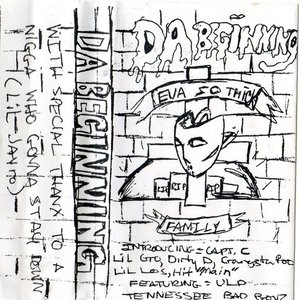 WITH SPECIAL THANX TO A
NIGGA WHO GONNA STAY DOWN
(LIL JAMES)
DA BEGINNING
DA BEGINNING
EVA SO THICK
RIP
RIP
FAMILY
INTRODUCING = CAPT. C
LIL GTO, DIRTY D, Gangsta Poo
LIL LOS, HIT "MAIN"
FEATURING = ULP
TENNESSEE BAD BOYZ